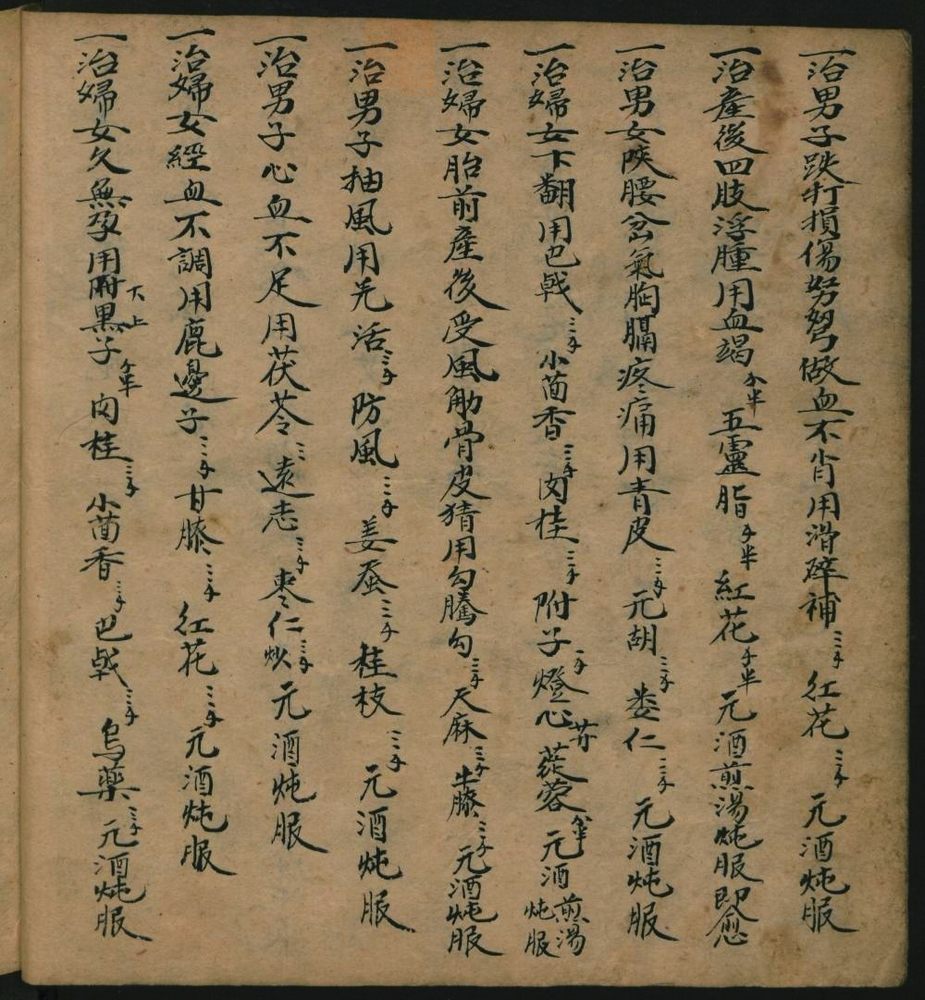 一治男子跌打損傷努弩做血不肖用滑碎補三个 红花三个 元酒炖服
一治產後四肢浮腫用血竭个半 五靈脂个半 紅花个半 元酒煎湯炖服即愈
一治男女陝腰岔氣胸膈疼痛用青皮二个 元胡三个 婁仁二个 元酒炖服
一治婦女下翻用巴戟三个 小茴香三个 肉桂三个 附子一个 燈心 蓯蓉 元酒煎湯炖服
一治婦女胎前產後受風觔骨皮猜用勾騰勾三个 天麻三个 膝三个 元酒炖服
一治男子抽風用羌活三个 防風三个 姜蚕三个 桂枝三个 元酒炖服
一治男子心血不足用茯苓三 遠志三个 棗仁炒三个 元酒炖服
一治婦女經血不調用鹿邊子三个 甘膝三个 红花三个 元酒炖服
一治婦女久無孕用附黑子下上 肉桂三个 小茴香三个 巴戟三个 烏藥三个 元酒炖服